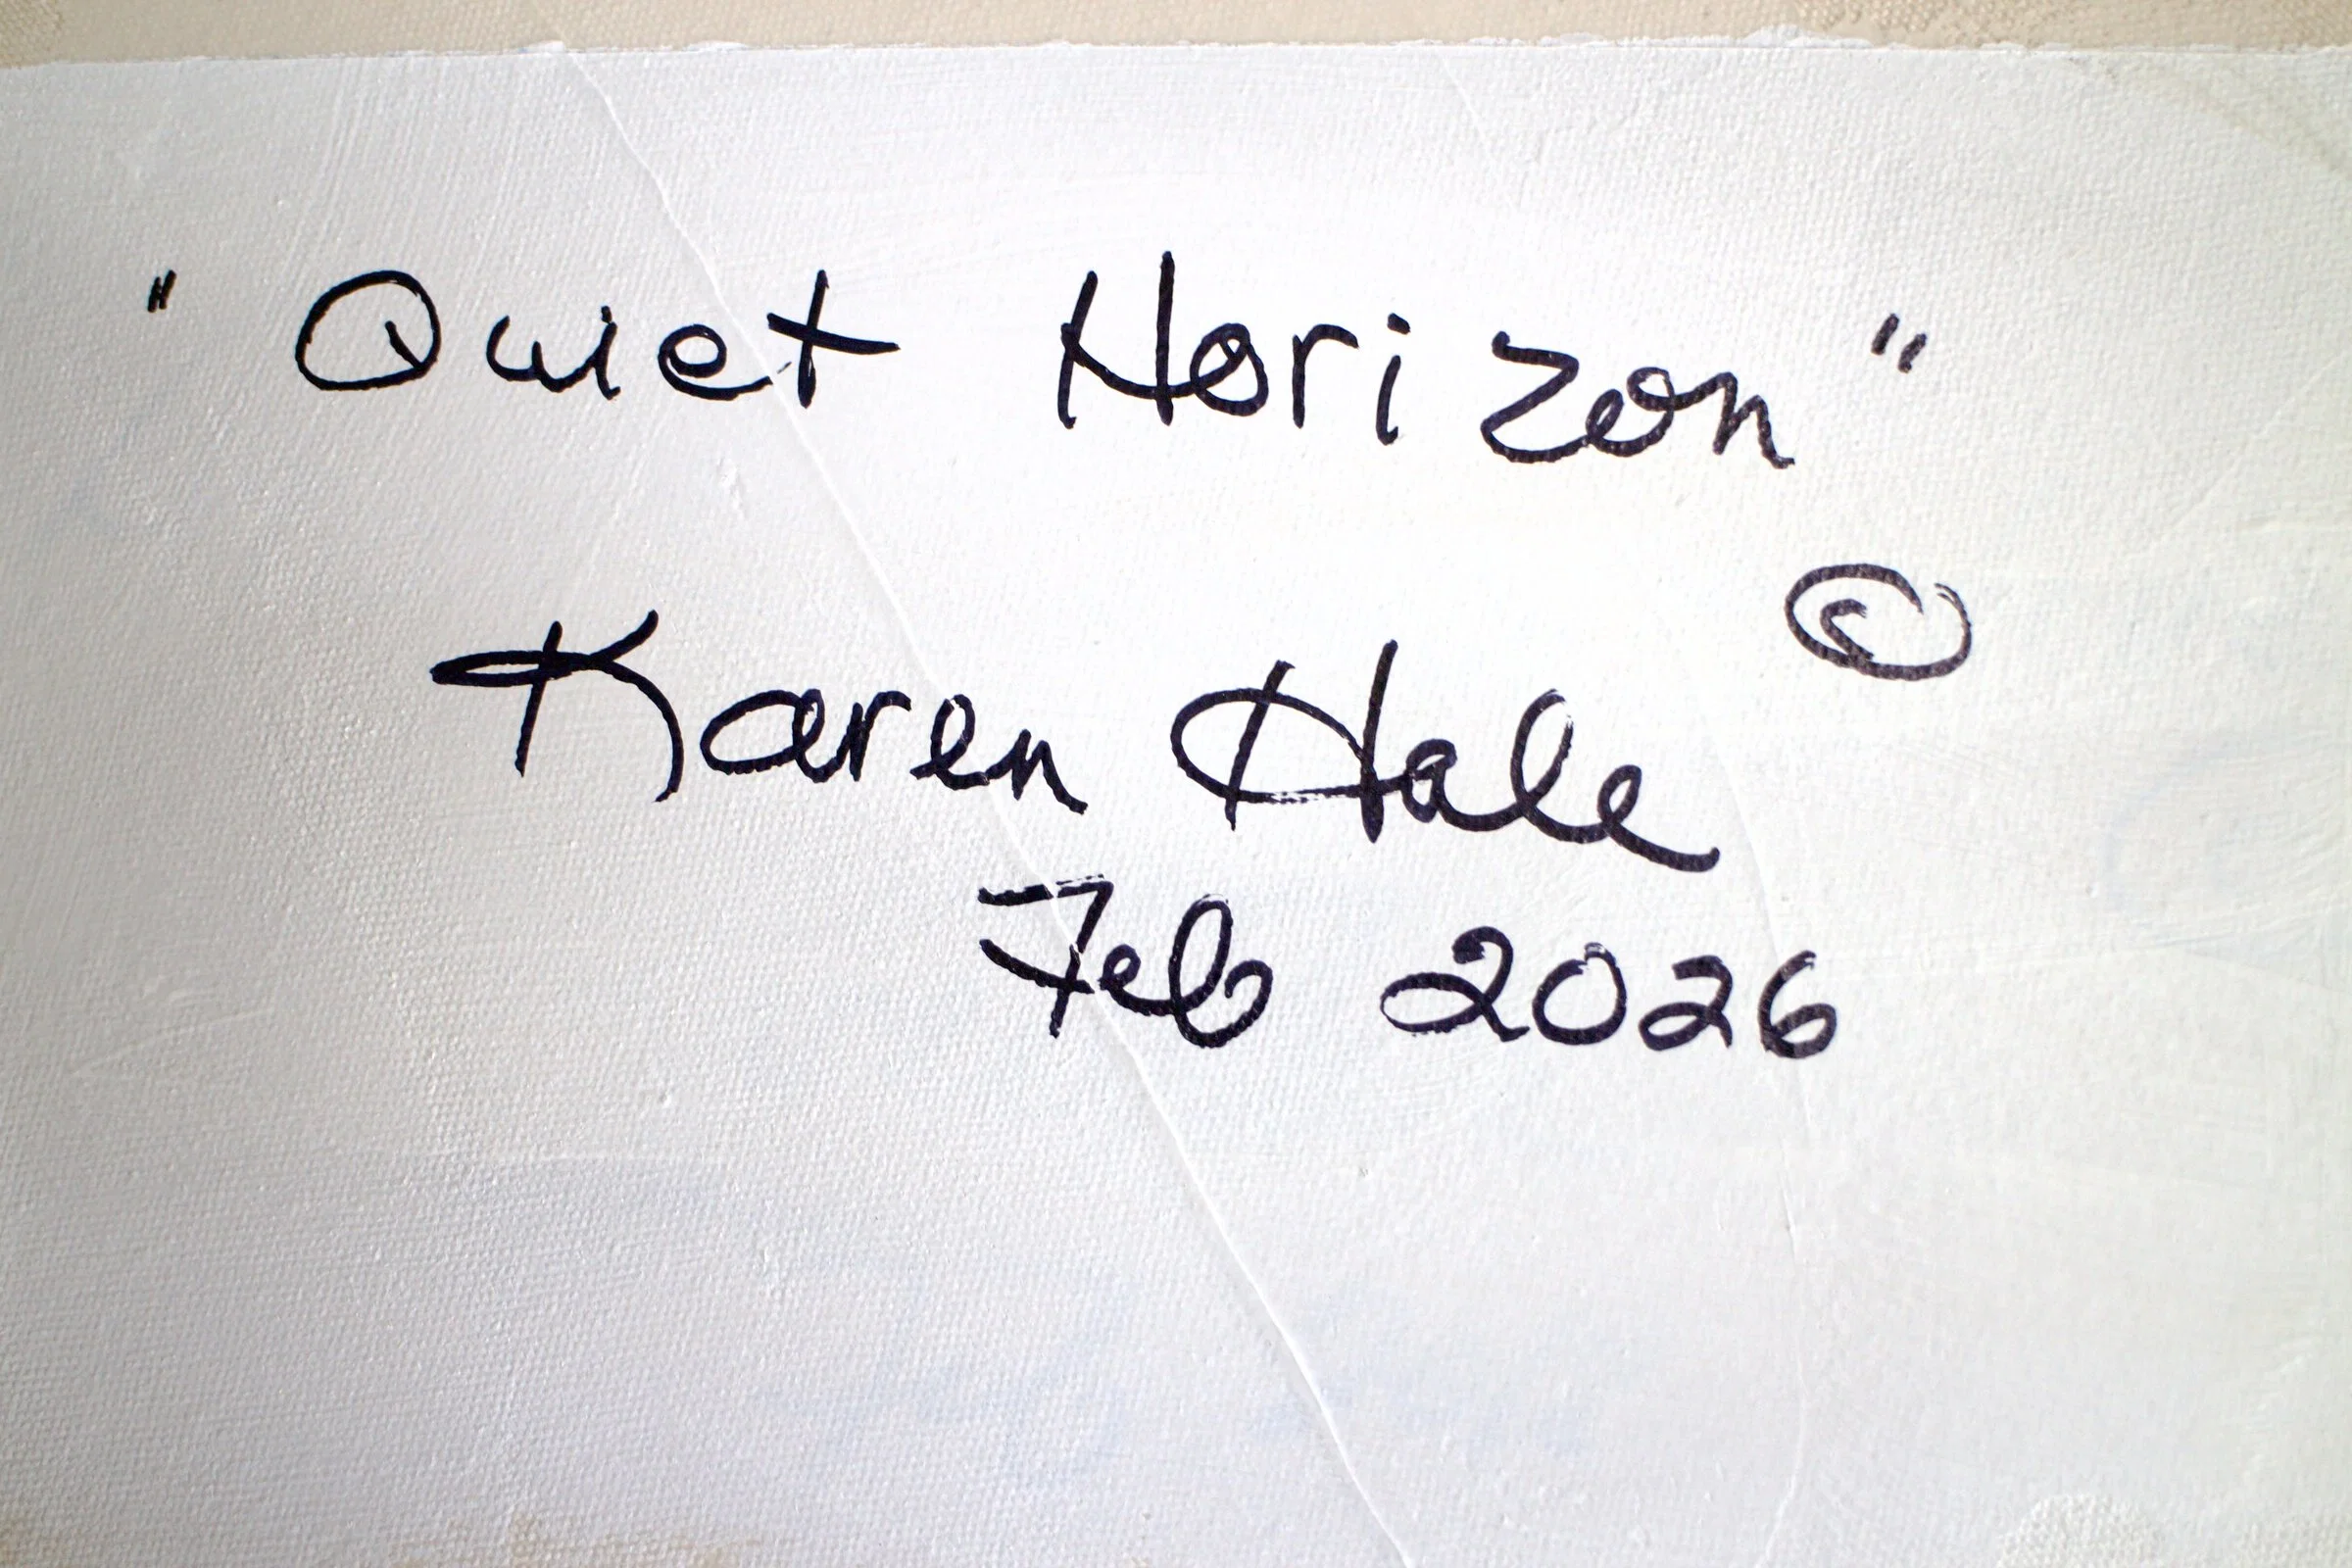 "Quiet Horizon"
©
Karen Hale
Feb 2026